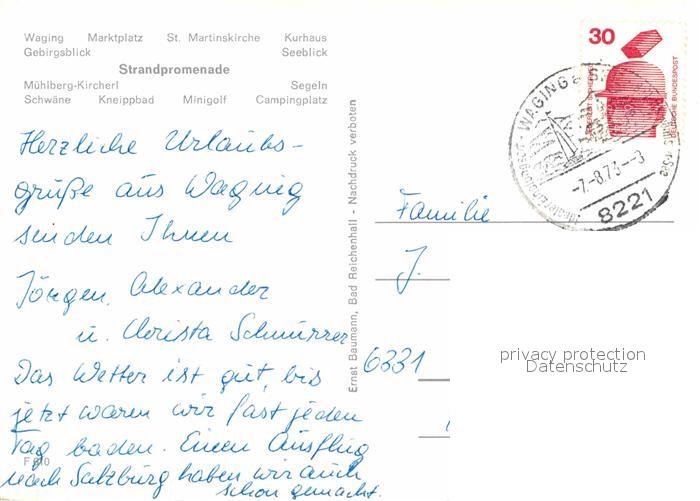 Waging Marktplatz St. Martinskirche Kurhaus
Gebirgsblick Seeblick
Strandpromenade
Mühlberg-Kircherl Segeln
Schwäne Kneippbad Minigolf Campingplatz
Herzliche Urlaubs-
grüße aus Waging
senden Ihnen
Jörgen, Alexander
u. Christa Schnurrer
Das Wetter ist gut, bis
jetzt waren wir fast jeden
Tag baden. Einen Ausflug
nach Salzburg haben wir auch
schon gemacht.
F 810
Ernst Baumann, Bad Reichenhall - Nachdruck verboten
Familie
J.
6331
privacy protection
Datenschutz
30
DEUTSCHE BUNDESPOST
WAGING a. S.
-7.-8.73--8
8221